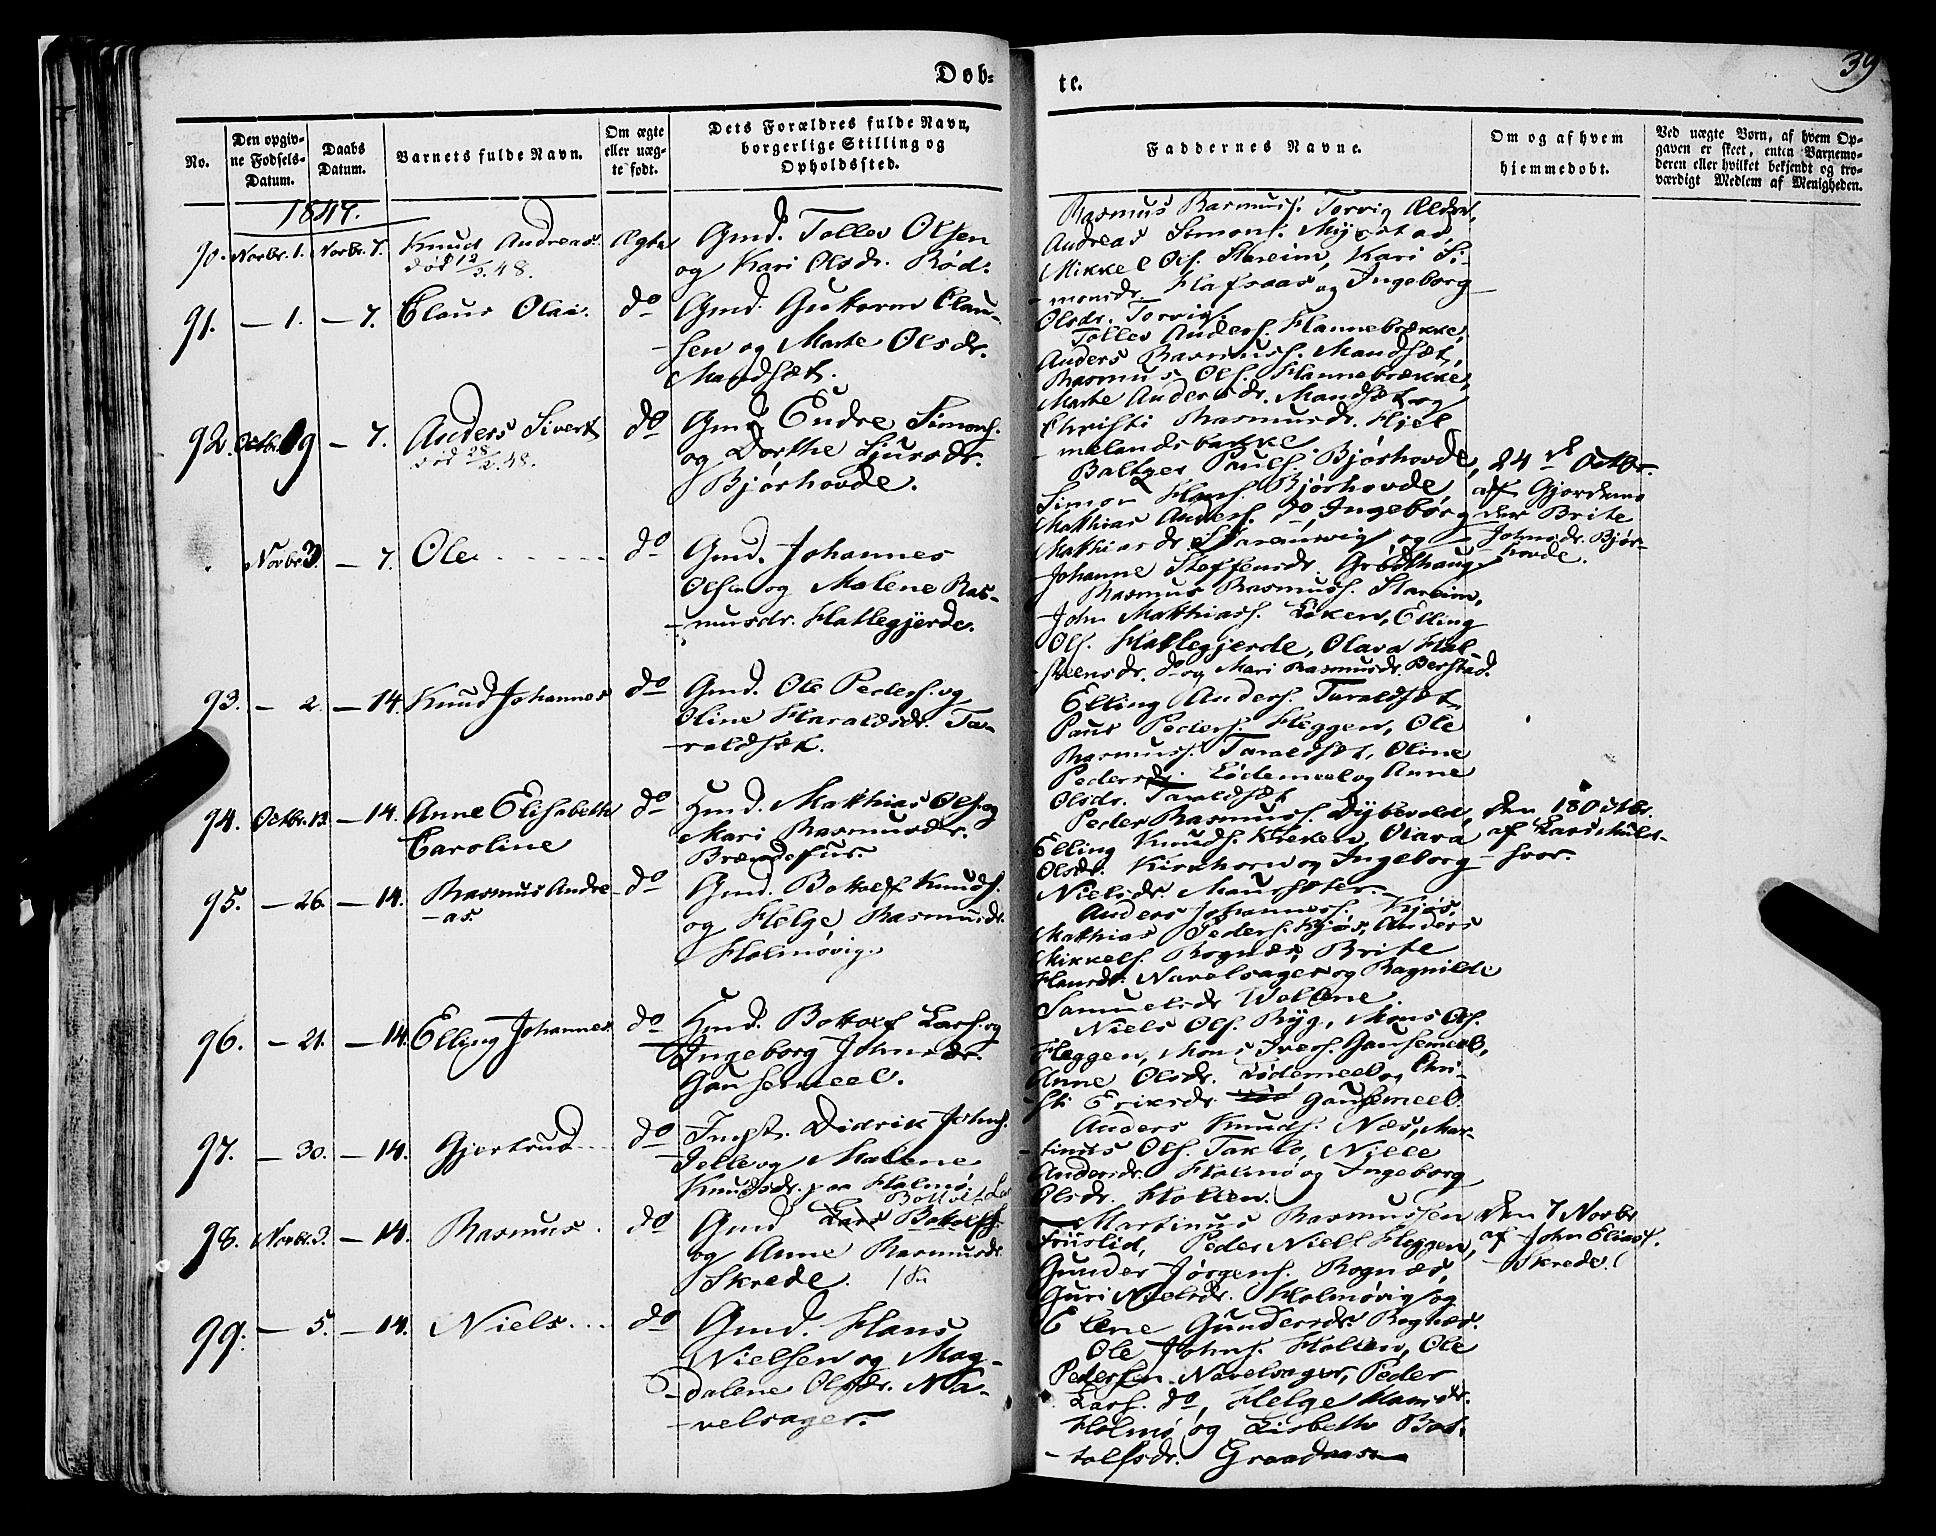 Døb-
te.
39
No.
Den opgiv-
ne Fødsels-
Datum.
Daabs
Datum.
Barnets fulde Navn.
Om ægte
eller uæg-
te født.
Dets Forældres fulde Navn,
borgerlige Stilling og
Opholdssted.
Faddernes Navne.
Om og af hvem
hjemmedøbt.
Ved uægte Børn, af hvem Op-
gaven er skeet, enten Barnemo-
deren eller hvilket bekjendt og tro-
værdigt Medlem af Menigheden.
1847.
90. Novbr. 1. Novbr. 7. Knud Andreas. Ægte
død 12/2.48.
Gmd. Tollev Olsen
og Kari Olsdr. Rød.
Rasmus Rasmuss. Torvig
Andreas Simons.
Mikkel Ols. Hareim, Kari Si-
monsdr. Hafsaas og Ingeborg
Olsdr. Torvig.
91. — 1. — 7. Claus Olai. do
Gmd. Guttorm Clau-
sen og Marte Olsdr.
Mandsæt.
Tollev Anders. Hannebrække,
Anders Rasmuss. Mandsæt,
Rasmus Ols. Hannebrække,
Marte Andersdr. Mandsæt og
Christi Rasmusdr. Hjel-
melandsbakke.
92. Octbr. 19 — 7. Anders Sivert do
død 28/2.48.
Gmd. Endre Simons.
og Dorthe Sjursdr.
Bjørhovde.
Baltzer Pauls. Bjørhovde,
Simon Hans. Bjørhovde
Matthias Anders. do, Ingebørg
Matthiasdr. og
Johanne Steffensdr. Grødthaug
24de Octbr.
af Gjordemo
der Brite
Johnsdr. Bjør-
hovde.
Novbr. 3. — 7. Ole do
Gmd. Johannes
Olsen og Malene Ras-
musdr. Hatlegjerde.
Rasmus Rasmuss. Hareim,
John Matthiass. Løken, Elling
Ols. Hatlegjerde, Olava Hal-
steensdr. do og Mari Rasmusdr. Berstad.
93. — 2. — 14. Knud Johannes do
Gmd. Ole Peders. og
Oline Haraldsdr. Ta-
raldsæt.
Elling Anders. Taraldsæt
Paul Peders. Heggen, Ole
Rasmuss. Taraldsæt, Oline
Pedersdr. Lødemeel og Anne
Olsdr. Taraldsæt
94. Octbr. 13. — 14. Anne Elisabeth do
Caroline
Hmd. Matthias Ols. og
Mari Rasmusdr.
Brændehus.
Peder Rasmuss. Dybevold,
Elling Knuds. Kreken, Olava
Olsdr. Kirkhorn og Ingeborg
Nielsdr. Maursæter.
Den 18 Octbr.
af Lars Muls-
hvor.
95. — 26. — 14. Rasmus Andre- do
as.
Gmd. Bottolf Knuds.
og Helge Rasmusdr.
Holmøvig.
Anders Johanness. Kjøs,
Matthias Peders. Kjøs, Anders
Mikkels. Rognæs, Brite
Hansdr. Navelsager og Ragnilde
Samuelsdr. Wollene.
96. — 21. — 14. Elling Johannes do
Hmd. Bottolf Lars. og
Ingeborg Johnsdr.
Gausemeel.
Niels Ols. Ryg, Mons Ols.
Heggen, Mons Ivers. Gausemeel,
Anne Olsdr. Lødemeel og Chri-
sti Eriksdr. Gausemeel.
97. — 30. — 14. Gjertrud do
Inst. Didrik Johns.
Jelle og Malene
Knudsdr. paa Holmø.
Anders Knuds. Næs, Mar-
tinus Ols. Taklo, Nille
Andersdr. Holmø og Ingeborg
Olsdr. Hollen.
98. Novbr. 3. — 14. Rasmus. do
Bottolf Lars
Gmd. Lars Bottolfs.
og Anne Rasmusdr.
Skrede.
Martinus Rasmussen
Friislid, Peder Niels. Heggen,
Gunder Jørgens. Rognæs,
Guri Nielsdr. Holmøvig og
Elene Gundersdr. Rognæs.
Den 7 Novbr
af John Elias.
Skrede.
99. — 5. — 14. Niels do
Gmd. Hans
Nielsen og Mag-
dalene Olsdr. Na-
velsager.
Ole Johns. Hollen, Ole
Pedersen Navelsager, Peder
Lars. do, Helge Hansdr.
Holmø og Lisbeth Bot-
tolfsdr. Graadaas